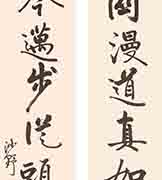 關漫道真如
今邁步從頭
沙野